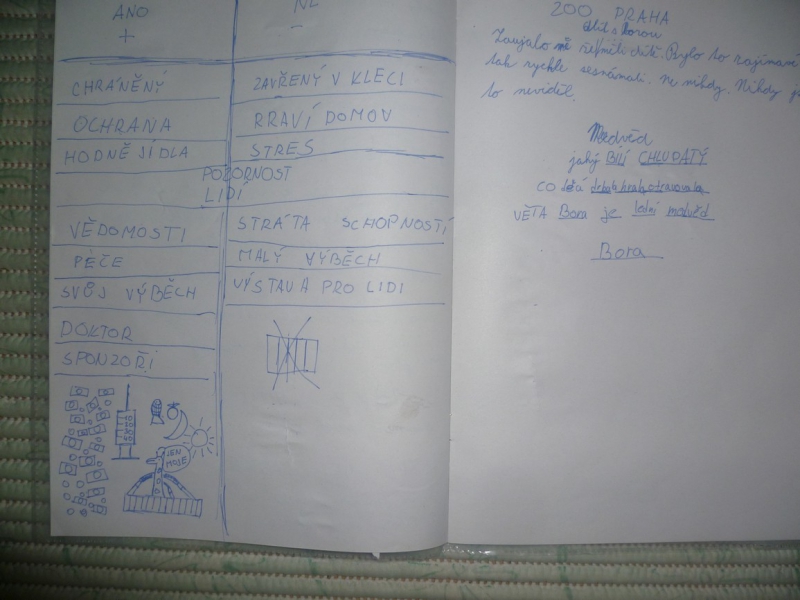 ANO
NE
+
-
CHRÁNĚNÝ
ZAVŘENÝ V KLECI
OCHRANA
PRAVÍ DOMOV
HODNĚ JÍDLA
STRES
POZORNOST
LIDÍ
VĚDOMOSTI
STRÁTA SCHOPNOSTÍ
PÉČE
MALÝ VÝBĚCH
SVŮJ VÝBĚCH
VÝSTAVA PRO LIDI
DOKTOR
SPONZOŘI
JEN
MOJE
ZOO PRAHA
Zaujalo
děti. Bylo to zajímavé
tak rychle seznámili. Nikdy
to neviděl.
Medvěd
jaký BÍLÍ CHLUPATÝ
CO
VĚTA Bora je lední medvěd
Bora